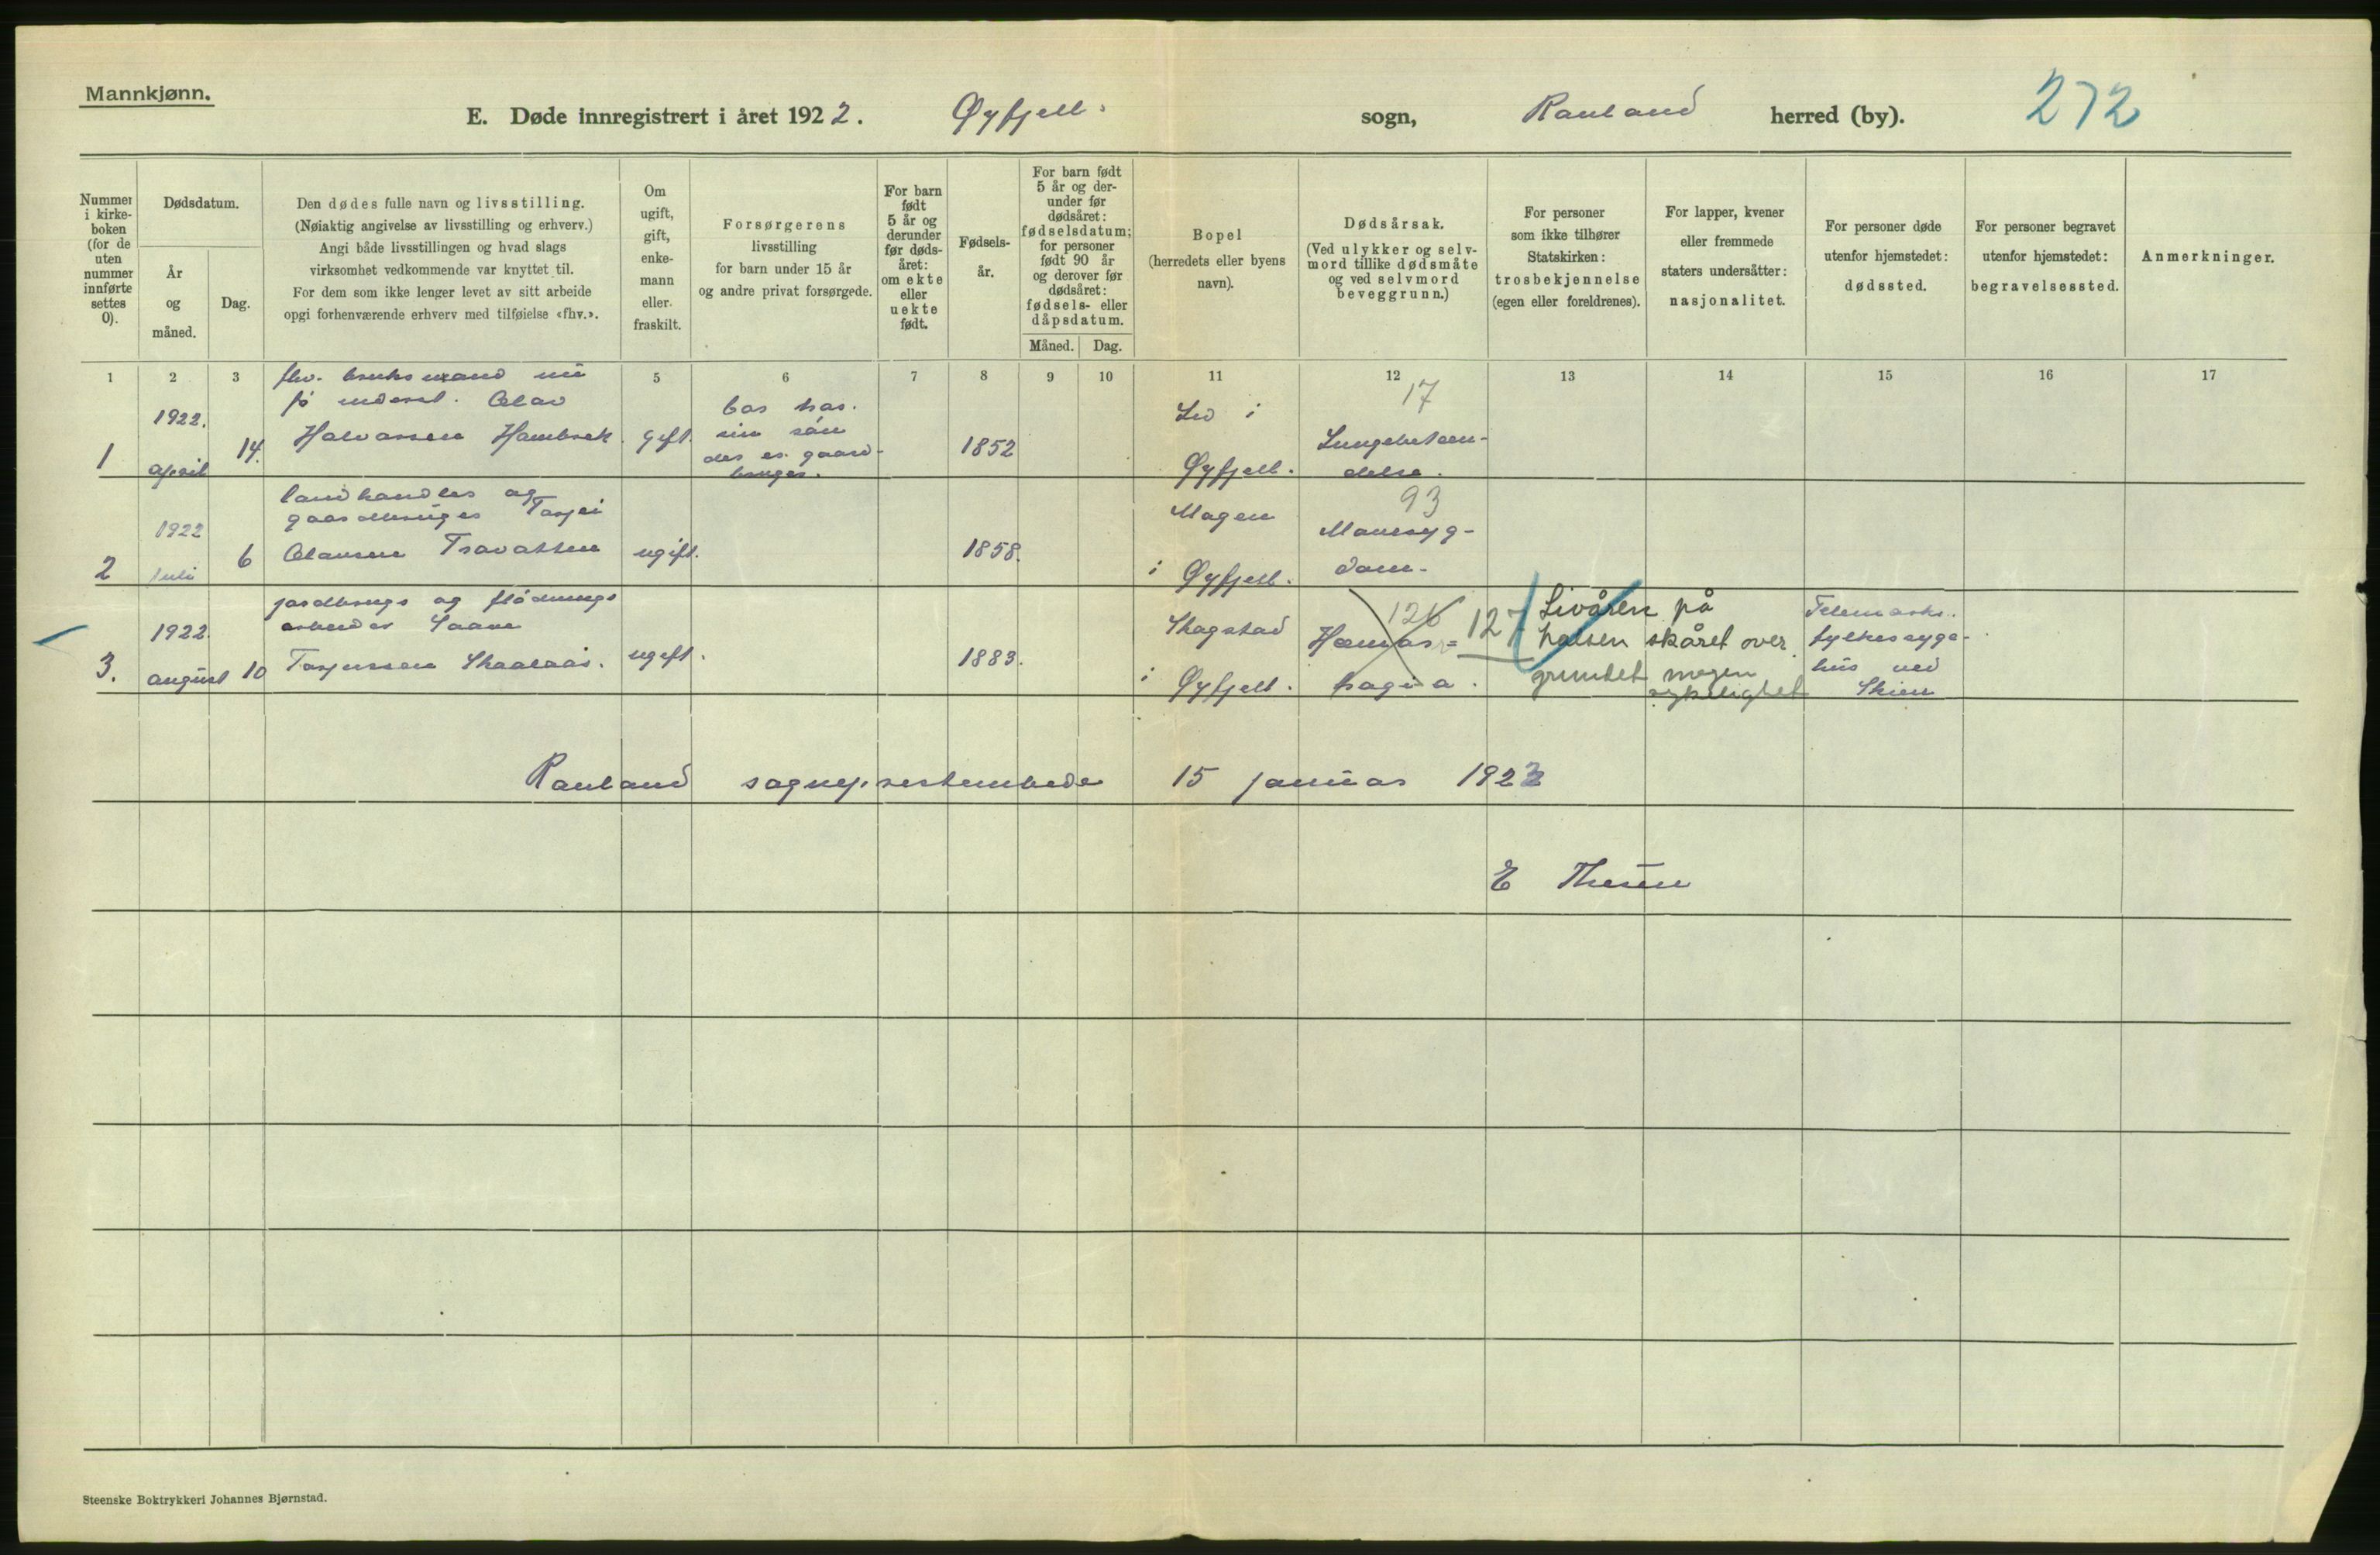 Mannkjønn.
E. Døde innregistrert i året 1922. Øyfjell sogn, Rauland herred (by). 272
Nummer
i kirke-
boken
(for de
uten
nummer
innførte
settes
0).
Dødsdatum.
År
og
måned.
Dag.
Den dødes fulle navn og livsstilling.
(Nøiaktig angivelse av livsstilling og erhverv.)
Angi både livsstillingen og hvad slags
virksomhet vedkommende var knyttet til.
For dem som ikke lenger levet av sitt arbeide
opgi forhenværende erhverv med tilføielse «fhv.».
Om
ugift,
gift,
enke-
mann
eller
fraskilt.
Forsørgerens
livsstilling
for barn under 15 år
og andre privat forsørgede.
For barn
født
5 år og
derunder
før døds-
året:
om ekte
eller
uekte
født.
Fødsels-
år.
For barn født
5 år og der-
under før
dødsåret:
fødselsdatum;
for personer
født 90 år
og derover før
dødsåret:
fødsels- eller
dåpsdatum.
Måned. Dag.
Bopel
(herredets eller byens
navn).
Dødsårsak.
(Ved ulykker og selv-
mord tillike dødsmåte
og ved selvmord
beveggrunn.)
For personer
som ikke tilhører
Statskirken:
trosbekjennelse
(egen eller foreldrenes).
For lapper, kvener
eller fremmede
staters undersåtter:
nasjonalitet.
For personer døde
utenfor hjemstedet:
dødssted.
For personer begravet
utenfor hjemstedet:
begravelsessted.
Anmerkninger.
1 2 3 5 6 7 8 9 10 11 12 13 14 15 16 17
1
1922.
april
14.
fhv. bruksmand nu
på underh. Olav
Halvorsen
gift.
hos
sin søn
der er gaard-
bruger.
1852
i
Øyfjell.
17
Lungebeteen-
delse.
2
1922
juli
6
landhandler og
gaardbruger Torjei
Olavsen
ugift.
1858.
Mogen
i Øyfjell.
93
Mavesyg-
dom.
3.
1922.
august
10
jordbrugs og flødnings
arbeider
Torjussen
ugift.
1883.
Skogstad
i Øyfjell.
126
Hæmor-
hagia.
127
Livåren på
halsen skåret over
grundet
sykelighet
Telemarks.
fylkessyge-
hus ved
Skien
Rauland sogneprestembede 15 januar 1923
E Thesen
Steenske Boktrykkeri Johannes Bjørnstad.